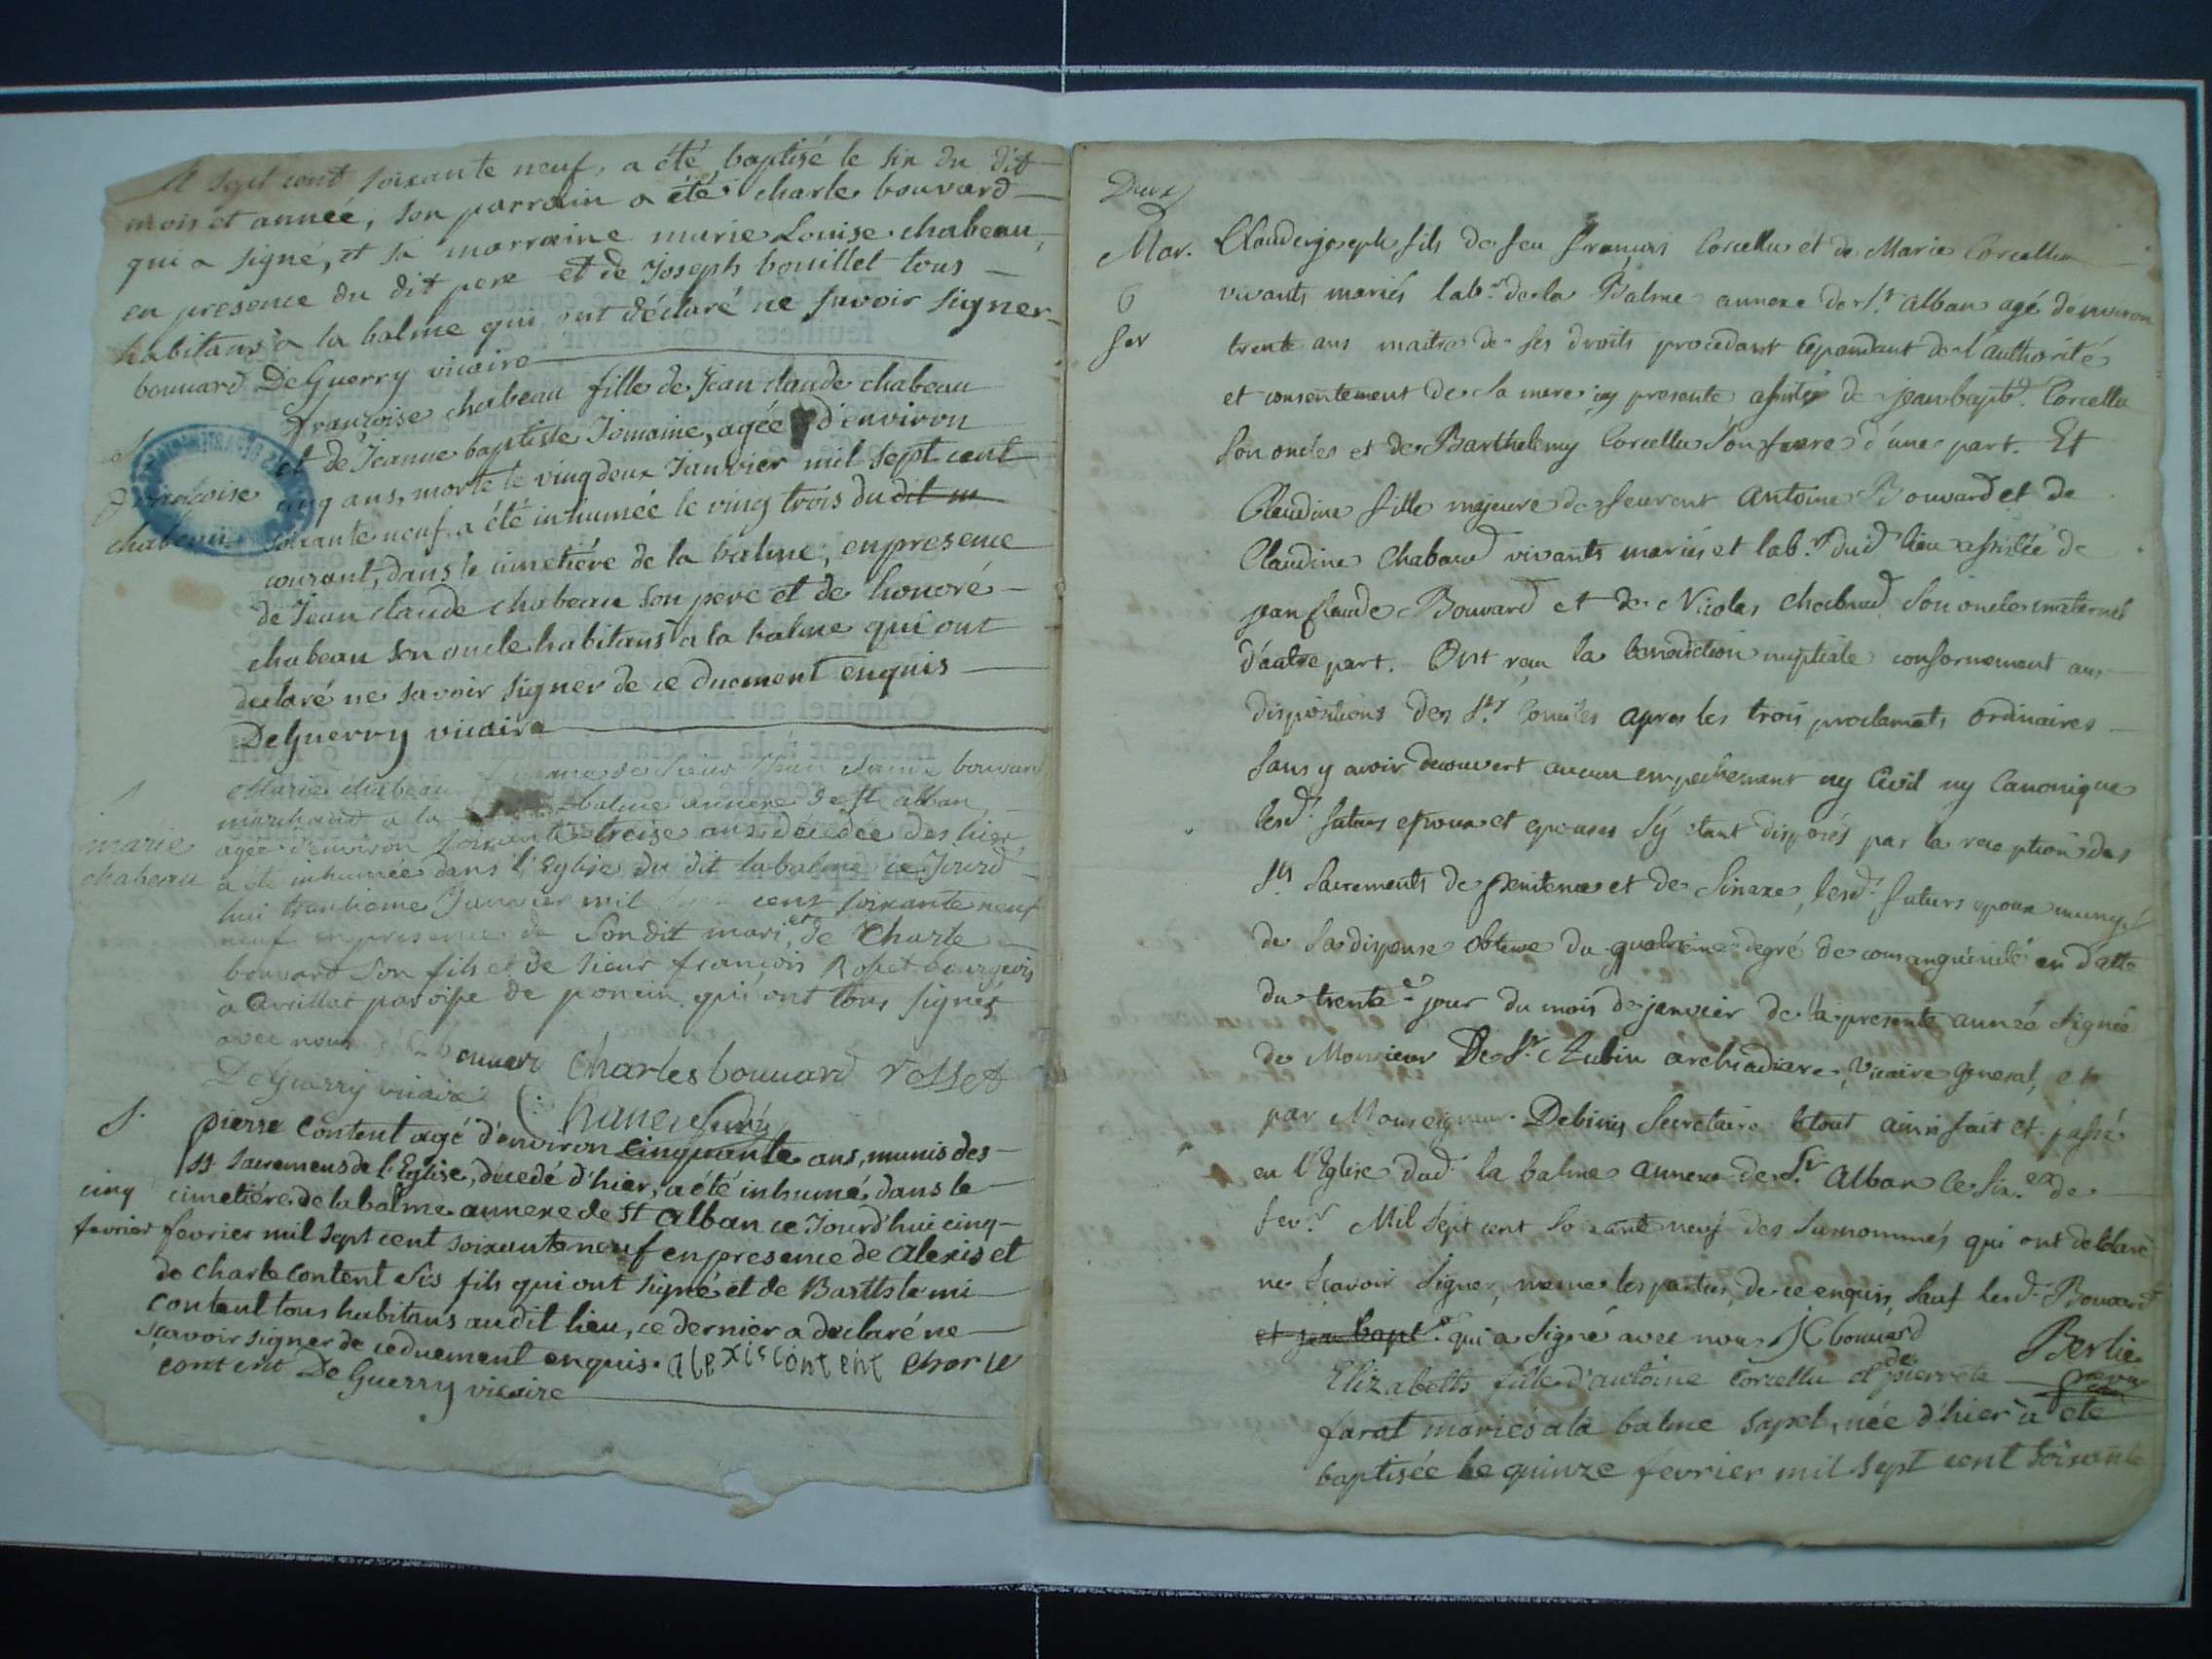 Mil sept cent soixante neuf, a été baptisé le six du dit
mois et année, son parrain a été charle bouvard
qui a signé, et sa marraine marie Louise chabeau,
en presence du dit pere et de Joseph bouillet tous
habitans a la balme qui ont déclaré ne savoir signer
bouvard DeGuerry vicaire
francoise chabeau fille de Jean claude chabeau
et de Jeanne baptiste Jomaine, agée d'environ
françoise
chabeau
cinq ans, morte le vingdeux Janvier mil sept cent
soixante neuf a été inhumée le ving trois du dit m
courant, dans le cimetiére de la balme, en presence
de Jean claude chabeau son pere et de honoré
chabeau son oncle habitans a la balme qui ont
declaré ne savoir signer de ce duement enquis
DeGuerry vicaire
Marie chabeau femme de sieur Jean claude bouvard
marchand a la balme annexe de St alban
marie
chabeau
agée d'environ soixante treise ans decedée des hier
a été inhumée dans l'Eglise du dit la balme ce Jourd
hui trentieme Janvier mil sept cent soixante neuf
neuf en presence de son dit mari, et de Charle
bouvard son fils et de sieur françois Rosset bourgeois
à avrillat paroisse de poncin qui ont tous signés
avec nous bouvard Charles bouvard rosset
DeGuerry vicaire
S.
pierre Content agé d'environ cinquante ans, munis des
SS Sacremens de l'Eglise, decedé d'hier, a été inhumé dans le
cinq
fevrier
cimetiére de la balme annexe de St alban ce Jourd'hui cinq
fevrier mil sept cent soixante neuf en presence de alexis et
de charle content ses fils qui ont signé et de Barthelemi
content tous habitans audit lieu, ce dernier a declaré ne
scavoir signer de ce duement enquis. alexis content charle
content DeGuerry vicaire
Deux
Mar.
6
fev
Claude joseph fils de feu François Corcellu et de Marie Corcellu
vivants mariés lab.r de la Balme annexe de St. Alban agé denviron
trente ans maitre de ses droits procedant cependant de l'authorité
et consentement de sa mere icy presente, assisté de jean bapt.e Corcellu
son oncle et de Barthelemy Corcellu son frere d'une part. Et
Claudine fille majeure de feurent Antoine Bouvard et de
Claudine Chabaud vivants mariés et lab.rs dud lieu assistée de
jean claude Bouvard et de Nicolas chabaud son oncle maternel
d'autre part. Ont reçu la benediction nuptiale conformement aux
dispositions des Sts Conciles apres les trois proclamats ordinaires
sans y avoir decouvert aucun empechement ny Civil ny Canonique
lesd. futurs epoux et epouses s'ÿ etant disposés par la reception des
Sts Sacrements de penitence et de Sinaxe, lesd. futurs epoux munys
de la dispense obtenue du quatrieme degré de consanguinité en datte
du trente e jour du mois de janvier de la presente année signée
de Monsieur De St Aubin archidiacre, vicaire general, et
par Monseigneur Debiris Secretaire le tout ainsi fait et passé
en l'Eglise dud. la balme annexe de St Alban le six.e de
fev.r Mil sept cent soixante neuf des surnommés qui ont declaré
ne scavoir signer, meme les parties, de ce enquis, sauf lesd. Bouvard
et jean bapt.e qui a signé avec nous JC bouvard
Berlie
Elizabeth fille d'antoine Corcellu et de pierrete
farat mariés a la balme sapel, née d'hier a été
baptisée le quinze fevrier mil sept cent soixante